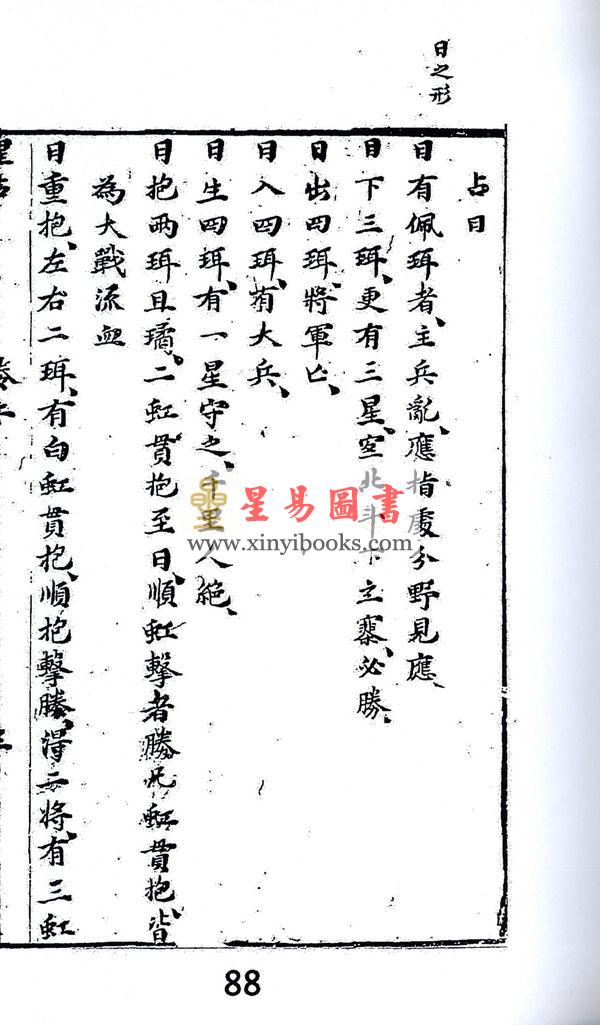 日之形
占曰
日有佩珥者、主兵亂、應指處分野見應、
日下三珥、更有三星、空北斗下立寨、必勝、
日出四珥、將軍亡、
日入四珥、有大兵、
日生四珥、有一星守之、千里人絕、
日抱兩珥且璚。二虹貫抱至日、順虹擊者勝、凡虹貫抱、皆
為大戰流血
日重抱、左右二珥、有白虹貫抱、順抱擊勝、得二將、有三虹
星易圖書
www.xinyibooks.com
88